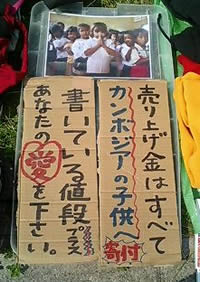 売り上げ金はすべて
カンボジアの子供へ
寄付
書いている値段プラス
あなたの愛を下さい。